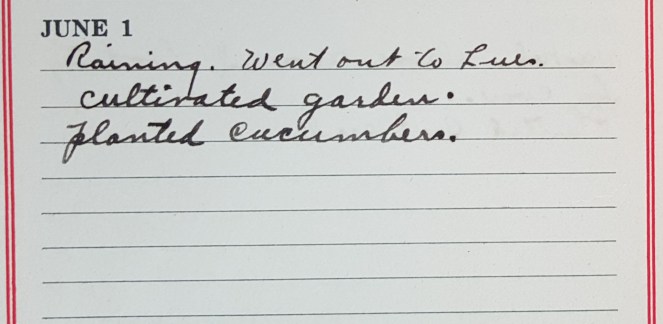 JUNE 1
Raining. Went out to Lues.
cultivated garden.
planted cucumbers.